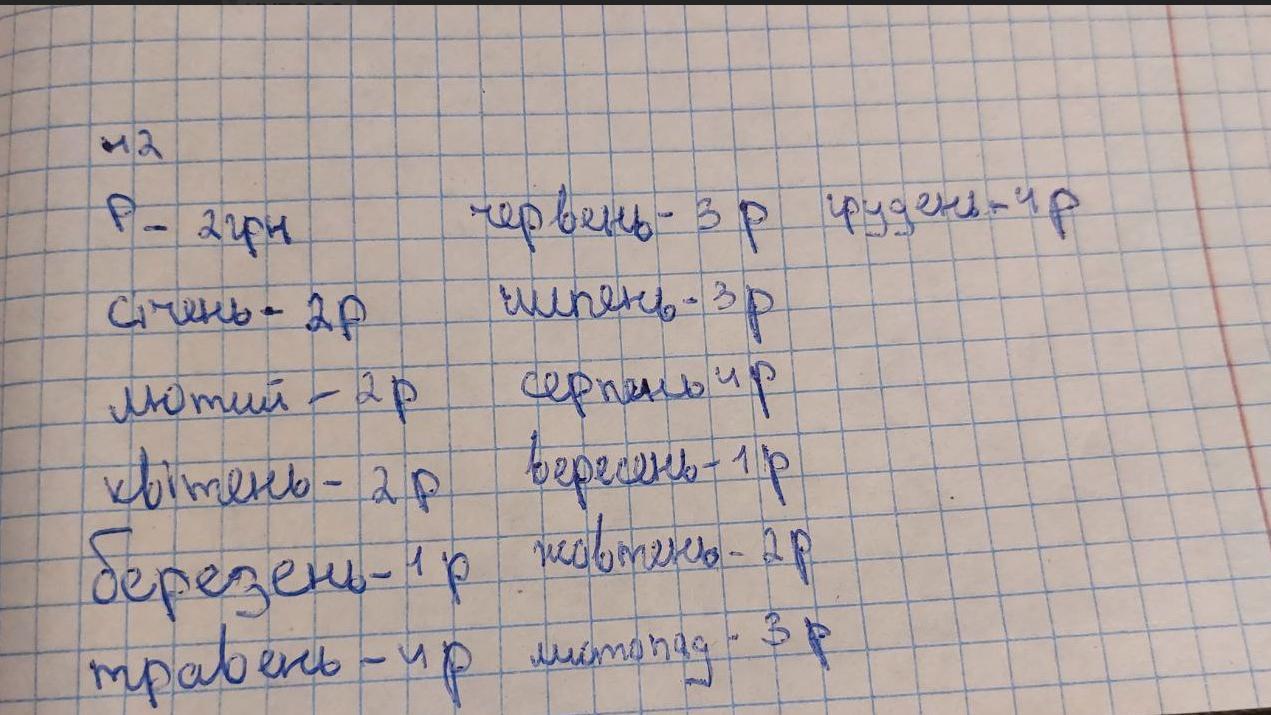 н2
Р - 2 грн
січень - 2р
лютий - 2р
квітень - 2р
березень - 1р
травень - 4р
червень - 3р
липень - 3р
серпень 4р
вересень - 1р
жовтень - 2р
листопад - 3р
грудень - 4р